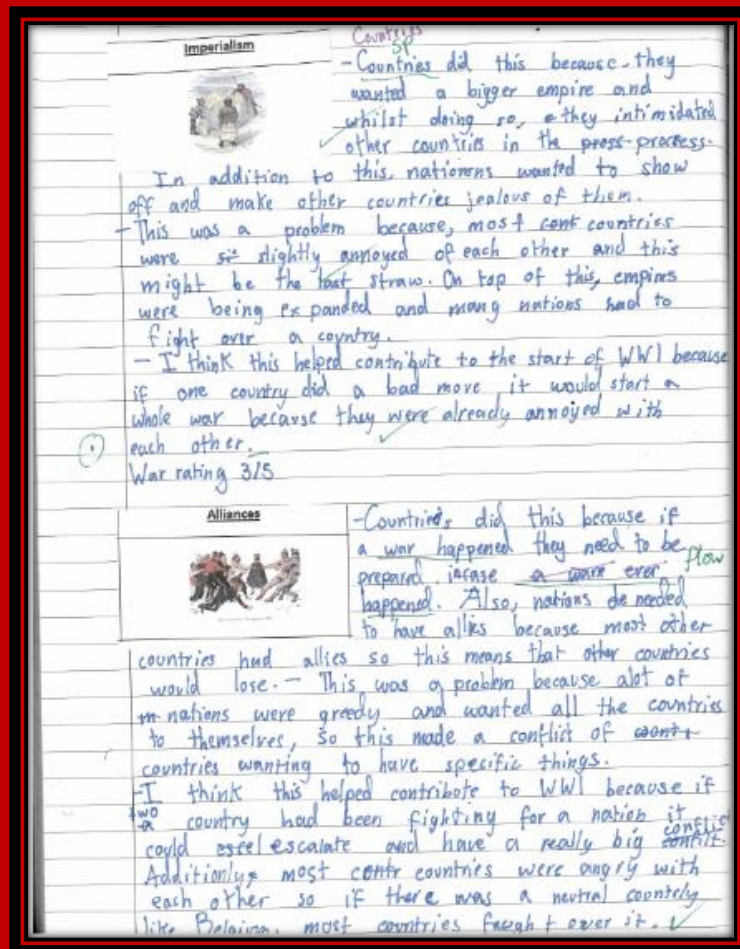 Imperialism
Countries
SP
- Countries did this because they
wanted a bigger empire and
whilst doing so, they intimidated
other countries in the press process.
In addition to this, nationens wanted to show
off and make other countries jealous of them.
- This was a problem because, most cont countries
were slightly annoyed of each other and this
might be the last straw. On top of this, empires
were being expanded and many nations had to
fight over a country.
- I think this helped contribute to the start of WW1 because
if one country did a bad move it would start a
whole war because they were already annoyed with
each other.
War rating 3/5
Alliances
- Countries did this because if
a war happened they need to be
flow
prepared incase a ware ever
happened. Also, nations de needed
to have allies because most other
countries had allies so this means that other countries
would lose. - This was a problem because alot of
m nations were greedy and wanted all the countries
to themselves, so this made a conflict of
countries wanting to have specific things.
- I think this helped contribute to WW1 because if
two
a country had been fighting for a nation it
conflic
could escel escalate and have a really big conflit.
Additionly, most contr countries were angry with
each other so if there was a neutral countrely
like most countries fought over it.